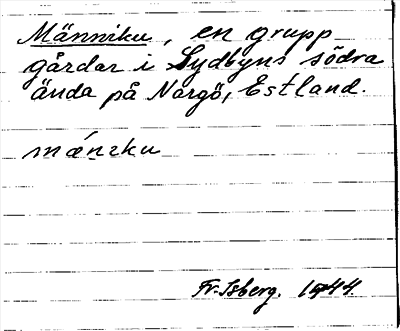 Männiku, en grupp
gårdar i Sydbyns södra
ända på Nargö, Estland.
mánɛku
Fr. Isberg. 1944